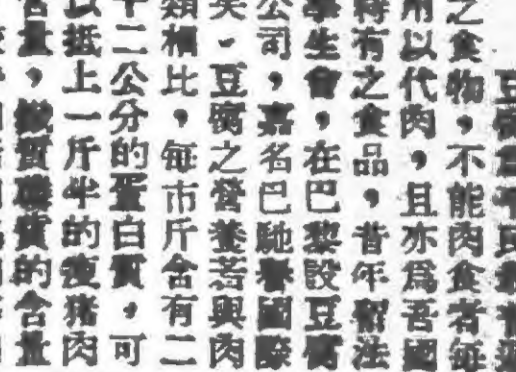 豆腐爲平民最普遍
之食物，不能肉食者每
用以代肉，且亦爲吾國
特有之食品，昔年留法
學生會，在巴黎設豆腐
公司，嘉名巴馳譽國際
矣。豆腐之營養若與肉
類相比，每市斤含有二
十二公分的蛋白質，可
以抵上一斤半的瘦猪肉
含量，的含量